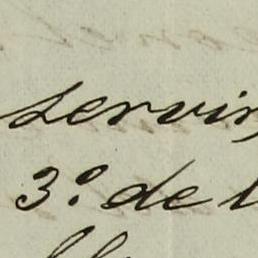 servir
3.º de l